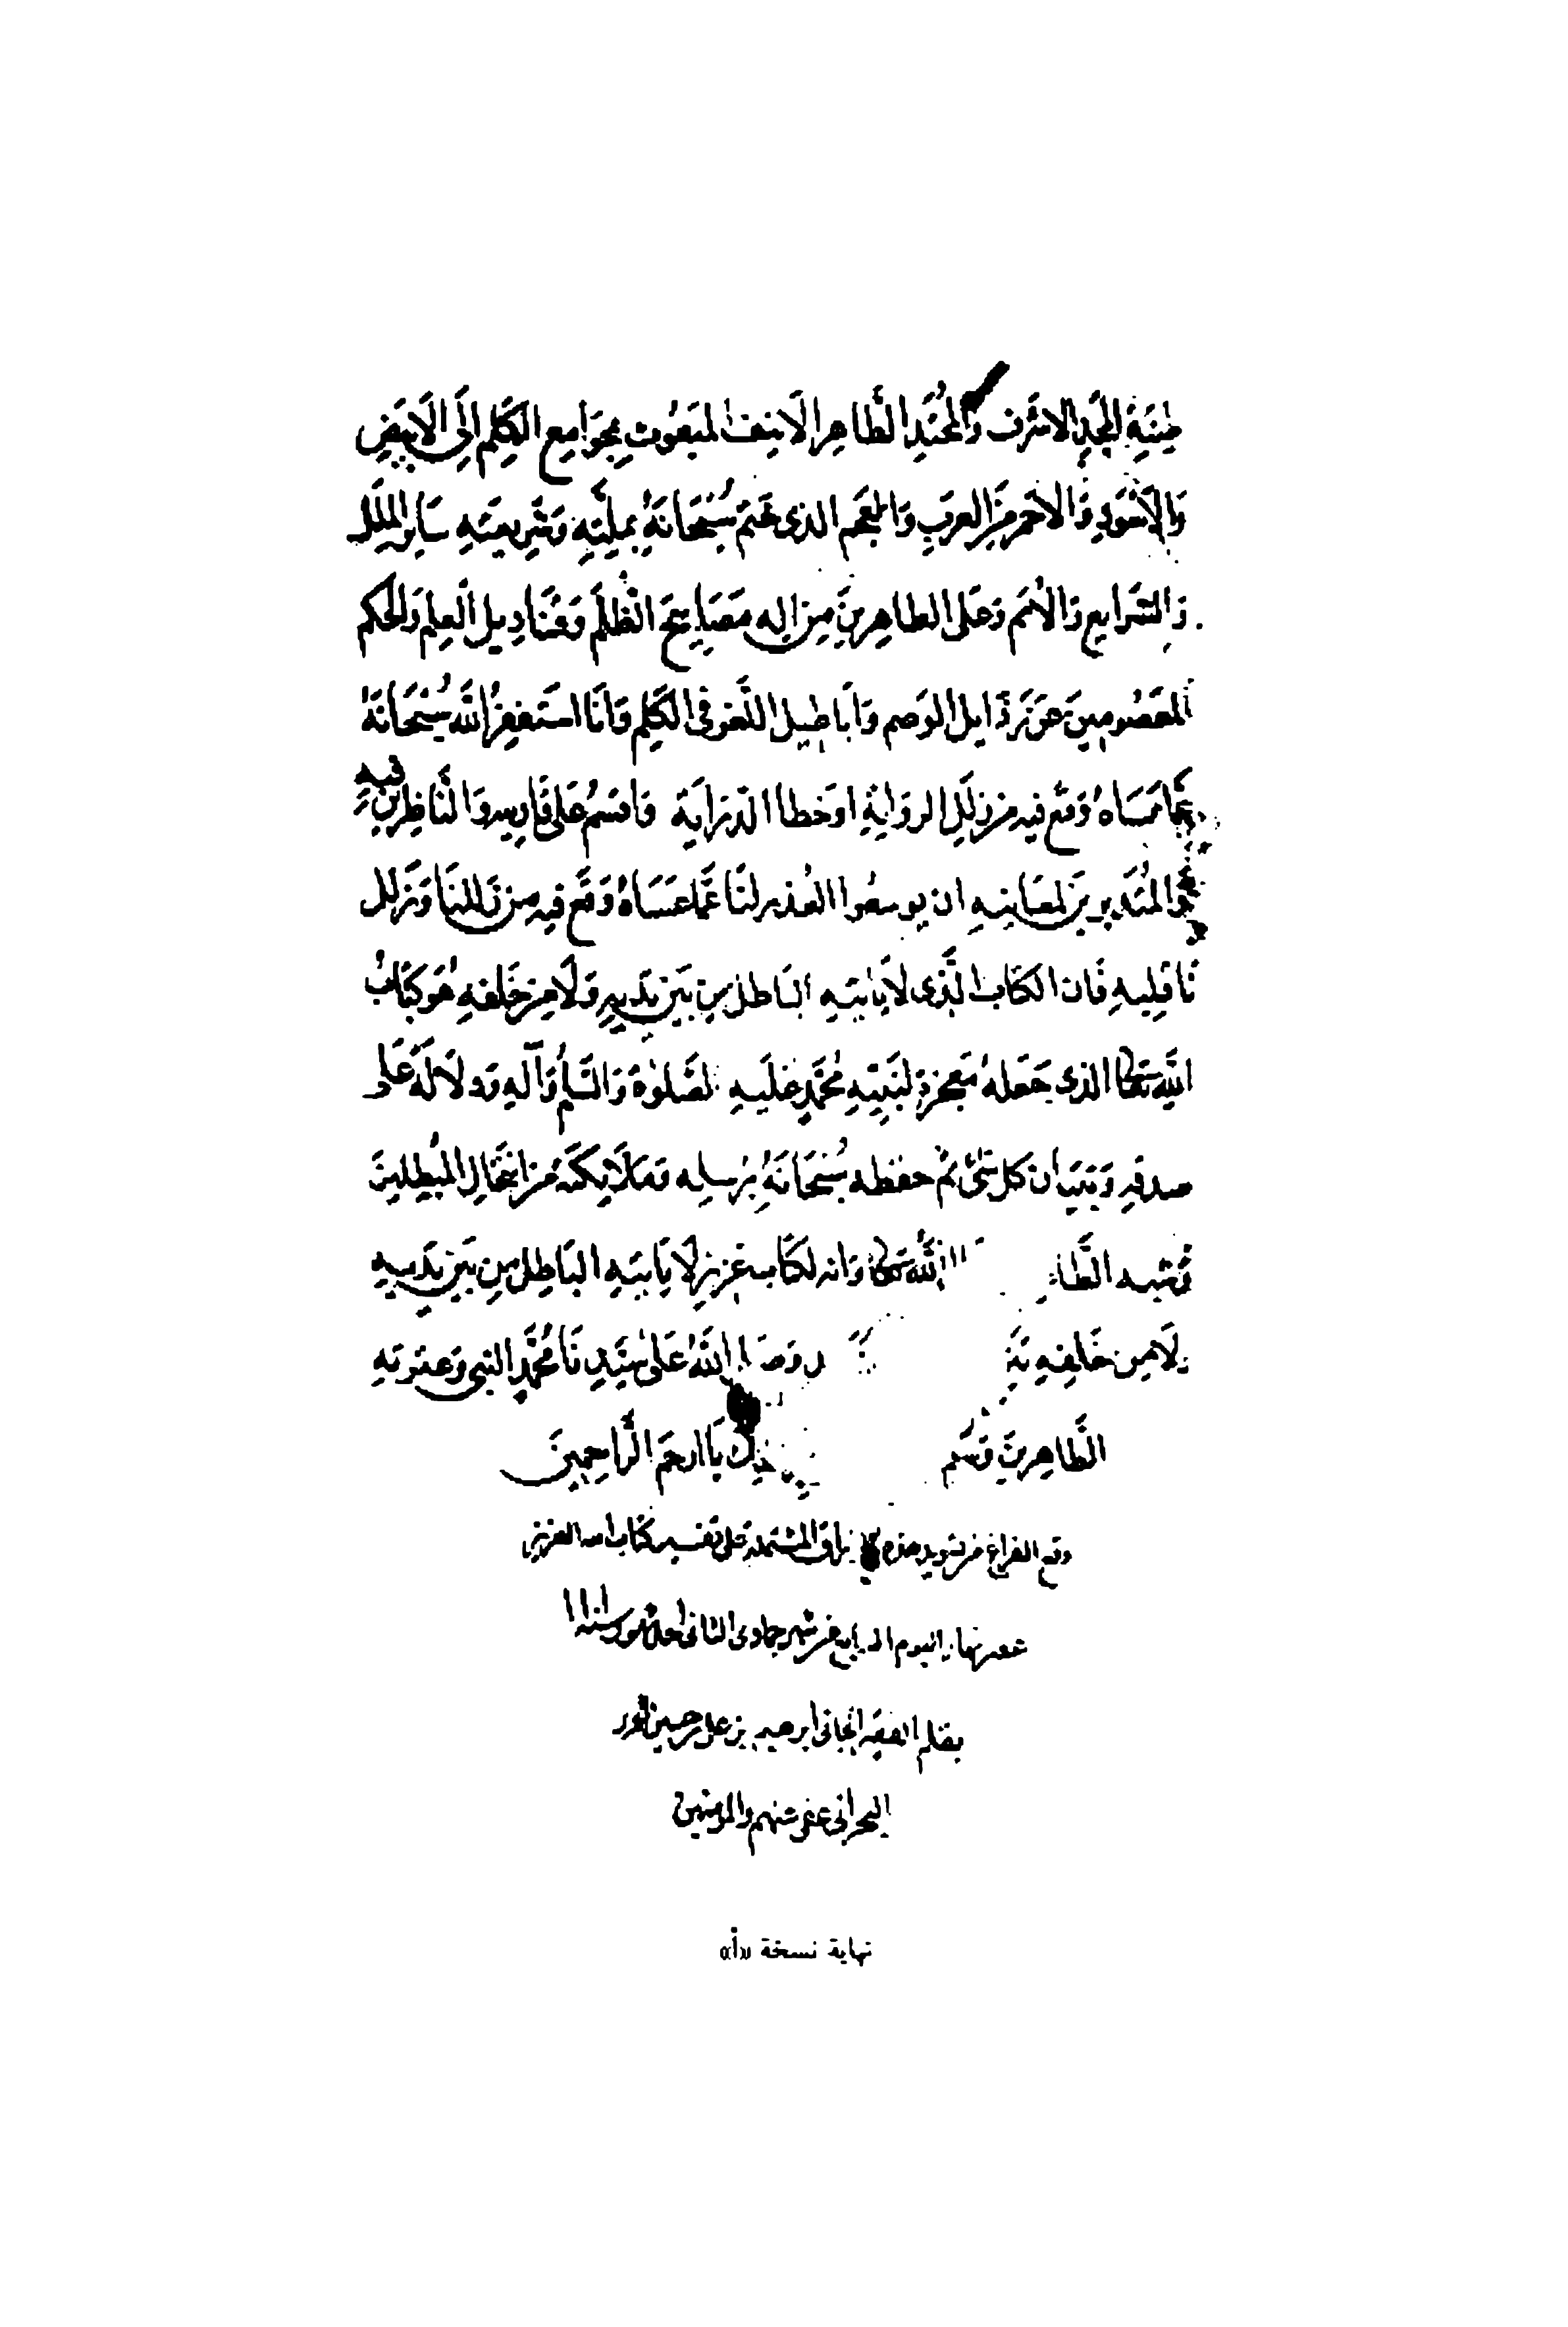 طِينَةِ المَجْدِ الاشرَف وَالمحْتَدِ الطَّاهِرِ الاَنِيف المَبعُوثِ بِجَوَامِع الكَلِم اِلَى الاَبيَضِ
وَالاَسْوَدِ وَالاحمَرِ مِنَ العَرَبِ وَالعَجَم الذى خَتَم سُبْحَانَهُ بِمِلَّتِهِ وَشَرِيعَتِهِ سَايِرَ المِلَل
وَالشَرَايع وَالاُمَم وَعَلى الطاهِرِينَ مِن الِه مَصَابِيحَ الظُلَمِ وَقَنَادِيل العِلم وَالحكم
المَعصُومِينَ عَن رَذَايل الوَصم وَاَبَاطِيل اللَّغو فى الكَلِم وَاَنَا استَغفِرُ اللهَ سُبْحَانَهُ
عَمَّا عَسَاهُ وَقَع فيه من زلَلِ الروَايَةِ اوخَطا الدّرَايَة وَاقسَمُ عَلى قَارِيه وَالنَّاظِرِينَ فيهِ
وَالمُتَدَبِرينَ لمعَانِيهِ ان يوسعُوا العُذر لنَا عَمَّا عَسَاهُ وَقَع فِيهِ مِن زَللنَا وَزَلل
نَاقِلِيهِ فَان الكتَاب الَّذِى لاَ يَاتيَهِ البَاطل مِن بَيْنِ يَدَيهِ وَلَا مِن خَلفِهِ هُوَ كِتَابُ
اللهِ تعَالى الذى جَعَلهُ مَعجِزةً لنَبِيّه مُحَمَّدٍ عَلَيهِ الصَّلوٰة وَالسَّلَم وَآلِهِ وَدلاَلَةً عَلى
صدقهِ وَتبيَان كل شَىٔ ثمَّ حفظه سُبْحَانَهُ بِرُسلِه وَمَلَايِكتَهِ مِن انتِحَالِ المُبطِلينَ
اللهُ تعَالى وَانه لكتَاب عَزِيز لاَ يَاتيَهِ البَاطِل مِن بَيْنِ يَدَيهِ
وَلَا مِن خَلفِهِ اللهُ عَلى سَيِّدِنَا مُحَمَّدٍ النبي وَعِترتهِ
الطَّاهِرِينَ وَسَلم يَا ارحَمَ الرَّاحِمِينَ
وقع الفراغ من تسويد هذه المشتملة على تفسير كتاب الله العزيز
عصر نهار اليوم الرابع من شهر جمادى الثانى
بقلم الفقير الجانى ابرهيم بن على بن حسين
البحرانى عفى عنهم والمؤمنين
نهاية نسخة «أ»